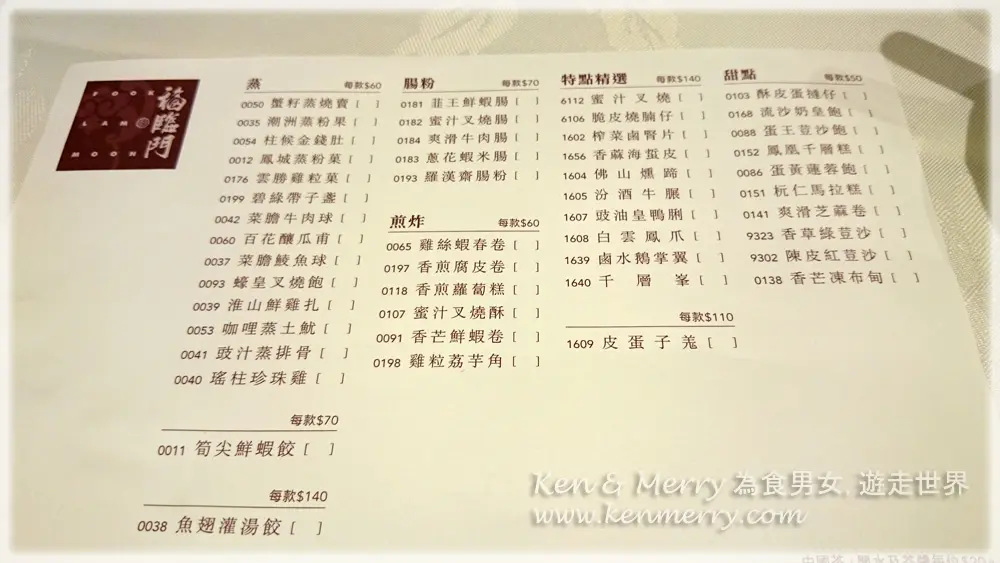 福臨門
FOOK
LAM
MOON
蒸 每款$60
0050 蟹籽蒸燒賣 [ ]
0035 潮洲蒸粉果 [ ]
0054 柱候金錢肚 [ ]
0012 鳳城蒸粉菓 [ ]
0176 雲勝雞粒菓 [ ]
0199 碧綠帶子盞 [ ]
0042 菜膽牛肉球 [ ]
0060 百花釀瓜甫 [ ]
0037 菜膽鯪魚球 [ ]
0093 蠔皇叉燒飽 [ ]
0039 淮山鮮雞扎 [ ]
0053 咖哩蒸土魷 [ ]
0041 豉汁蒸排骨 [ ]
0040 瑤柱珍珠雞 [ ]
每款$70
0011 筍尖鮮蝦餃 [ ]
每款$140
0038 魚翅灌湯餃 [ ]
腸粉 每款$70
0181 韮王鮮蝦腸 [ ]
0182 蜜汁叉燒腸 [ ]
0184 爽滑牛肉腸 [ ]
0183 蔥花蝦米腸 [ ]
0193 羅漢齋腸粉 [ ]
煎炸 每款$60
0065 雞絲蝦春卷 [ ]
0197 香煎腐皮卷 [ ]
0118 香煎蘿蔔糕 [ ]
0107 蜜汁叉燒酥 [ ]
0091 香芒鮮蝦卷 [ ]
0198 雞粒荔芋角 [ ]
特點精選 每款$140
6112 蜜汁叉燒 [ ]
6106 脆皮燒腩仔 [ ]
1602 榨菜鹵腎片 [ ]
1656 香蔴海蜇皮 [ ]
1604 佛山燻蹄 [ ]
1605 汾酒牛𦟌 [ ]
1607 豉油皇鴨脷 [ ]
1608 白雲鳳爪 [ ]
1639 鹵水鵝掌翼 [ ]
1640 千層峯 [ ]
每款$110
1609 皮蛋子羗 [ ]
甜點 每款$50
0103 酥皮蛋撻仔 [ ]
0168 流沙奶皇飽 [ ]
0088 蛋王荳沙飽 [ ]
0152 鳳凰千層糕 [ ]
0086 蛋黃蓮蓉飽 [ ]
0151 杬仁馬拉糕 [ ]
0141 爽滑芝蔴卷 [ ]
9323 香草綠荳沙 [ ]
9302 陳皮紅荳沙 [ ]
0138 香芒凍布甸 [ ]
Ken & Merry 為食男女, 遊走世界
www.kenmerry.com